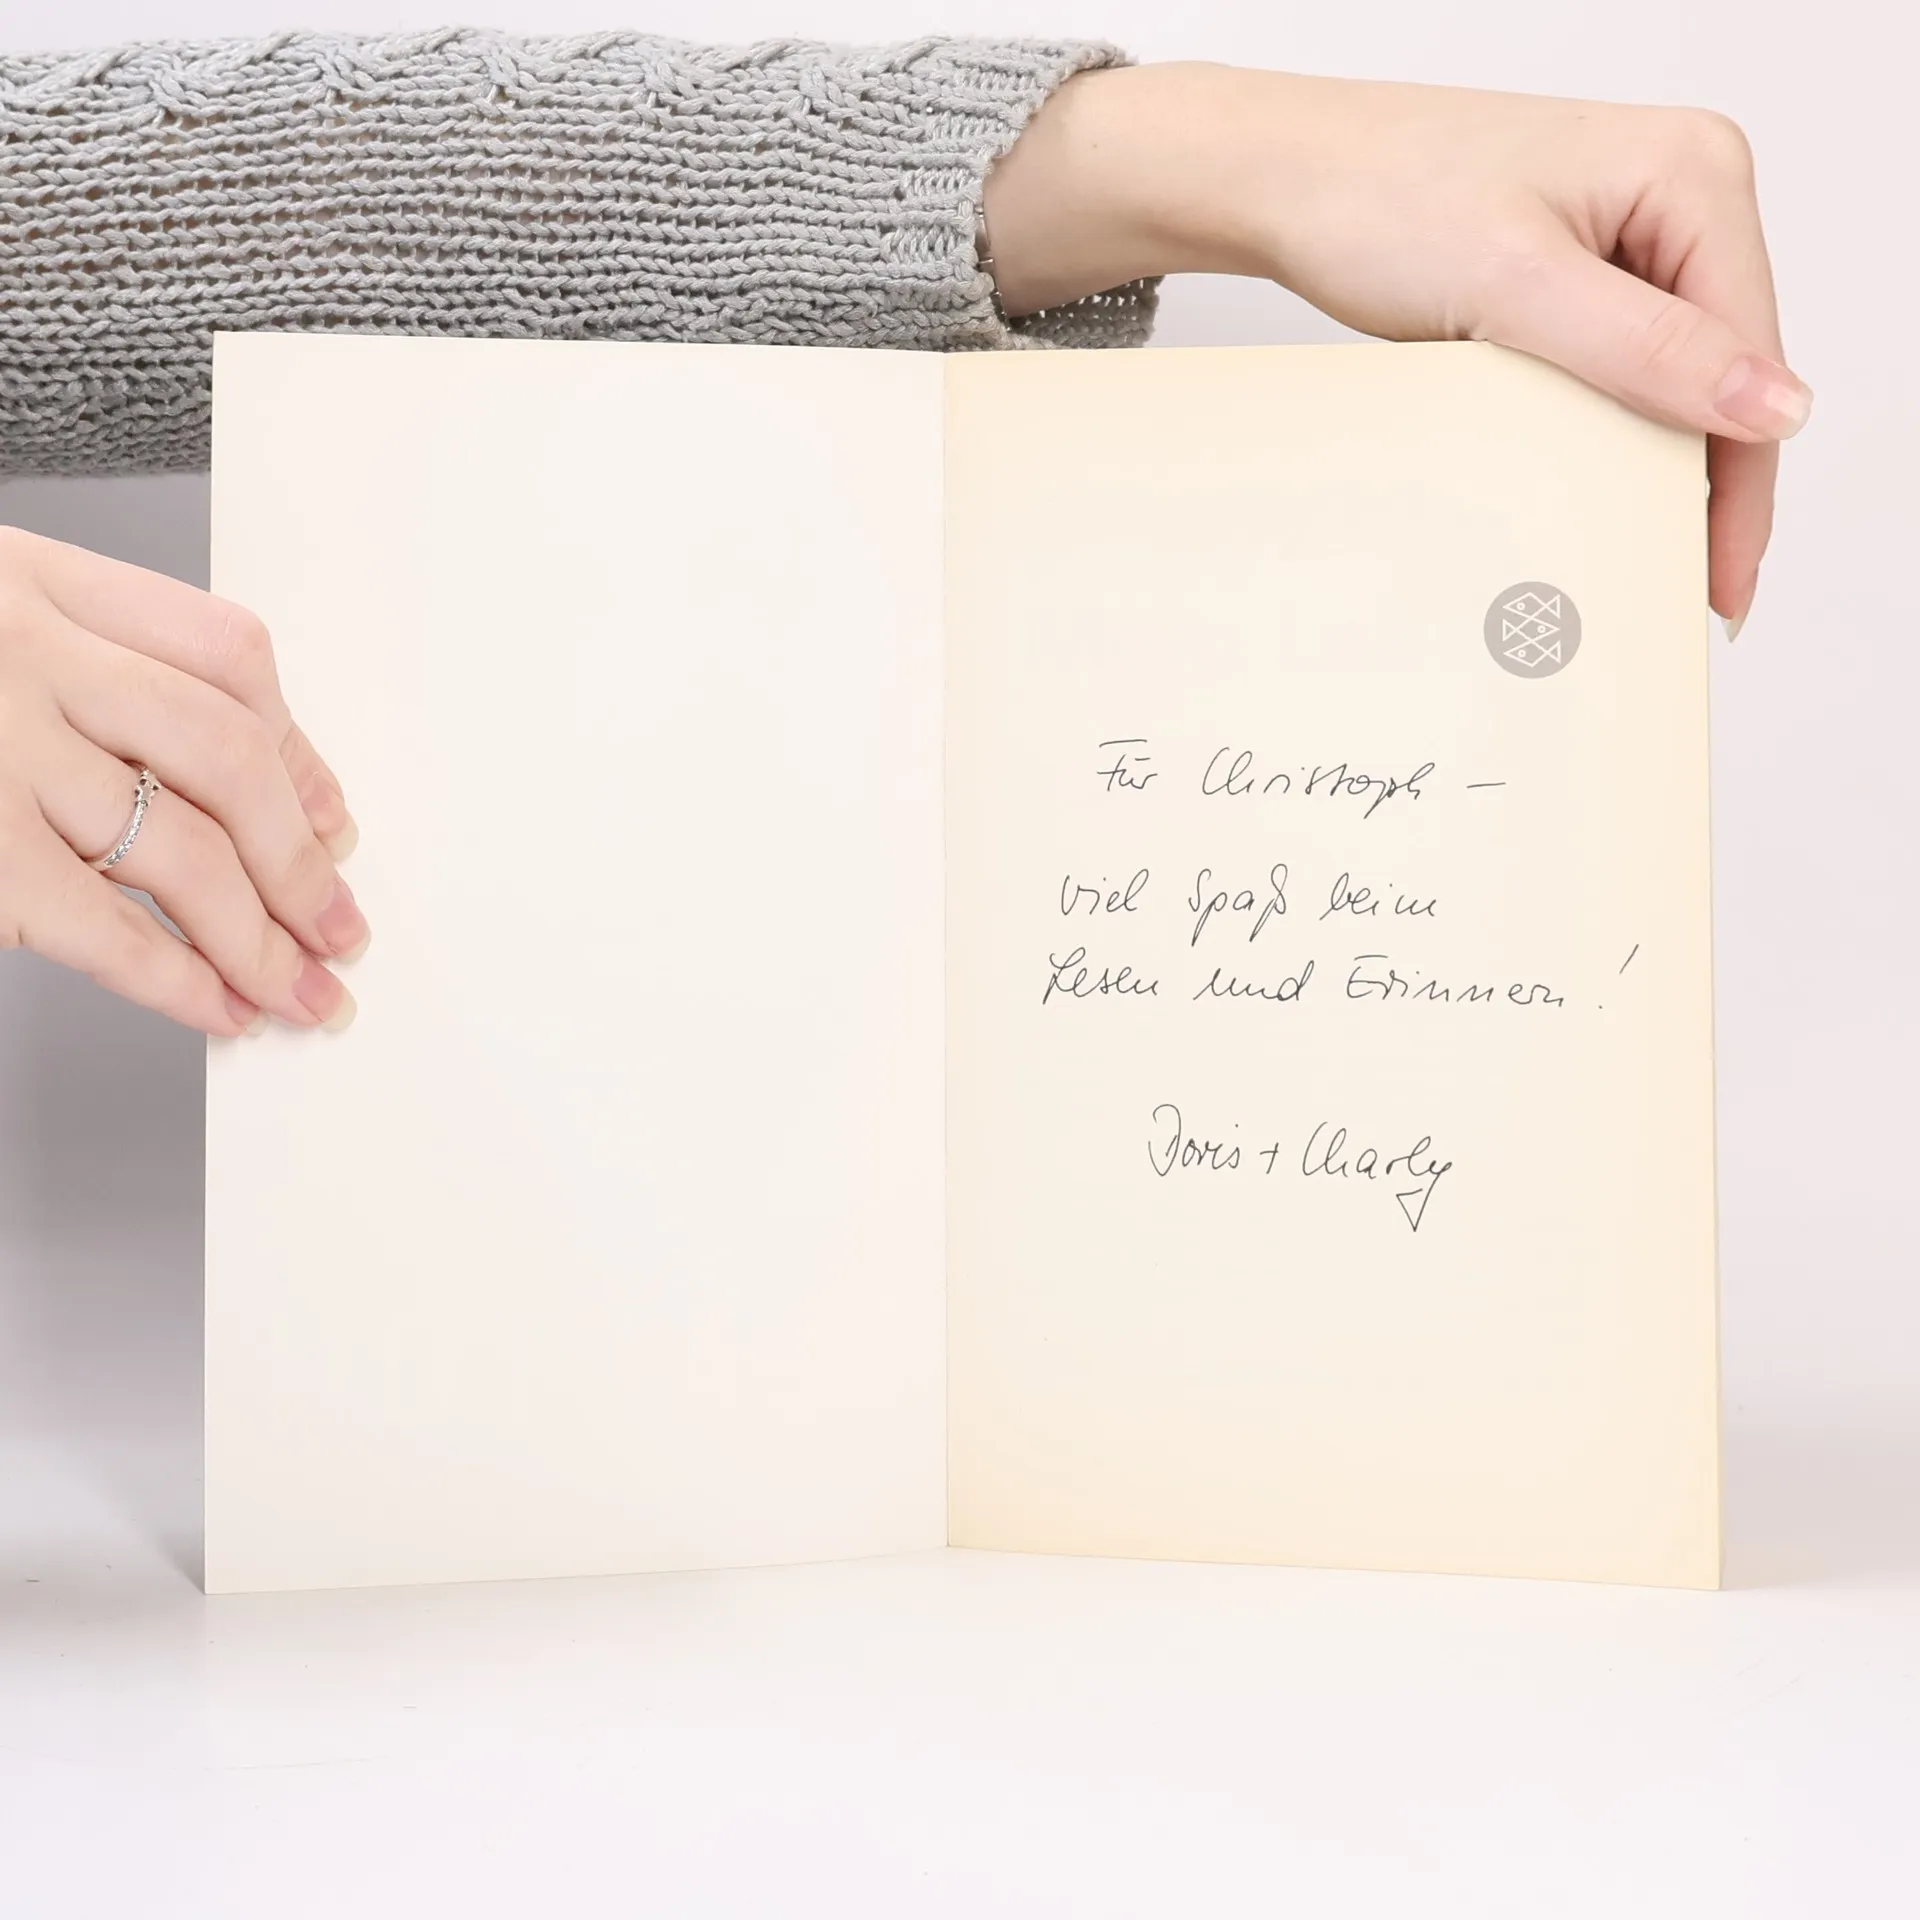 Für Christoph –
viel Spaß beim
Lesen und Erinnern!
Doris + Charly